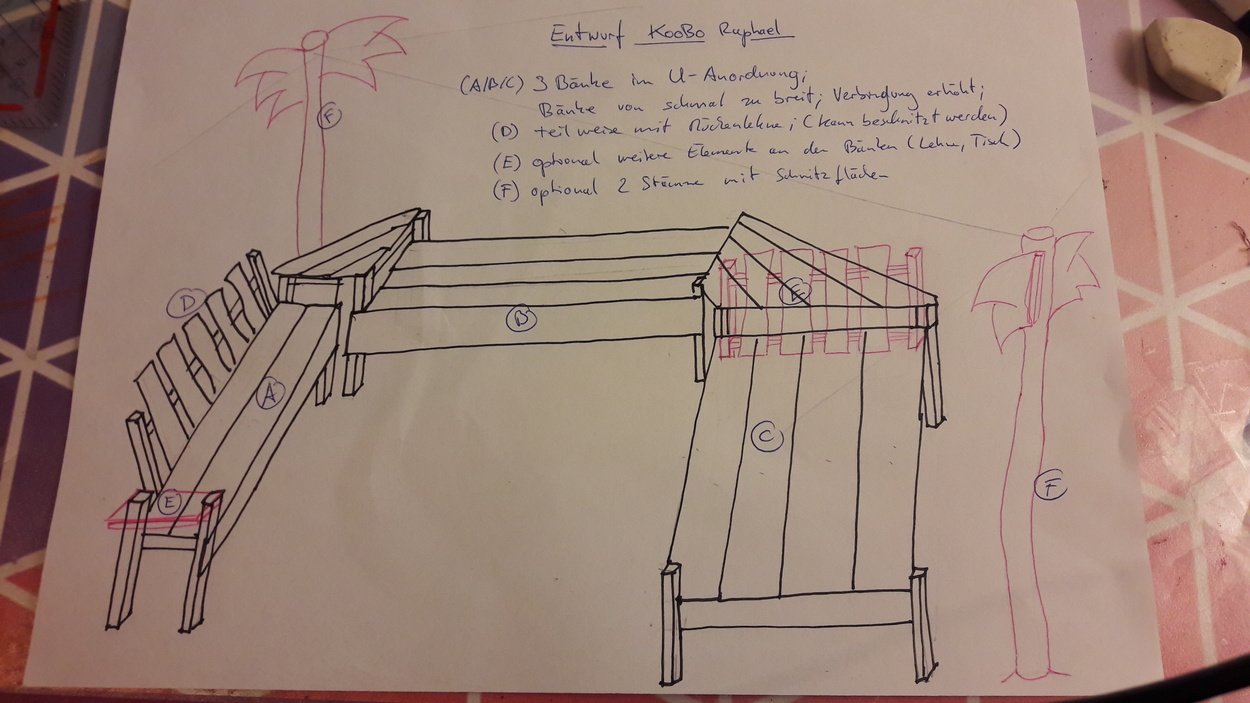 Entwurf KooBo Raphael
(A/B/C) 3 Bänke in U-Anordnung;
Bänke von schmal zu breit; Verbindung erhöht;
(D) teilweise mit Rückenlehne; (kann beschnitzt werden)
(E) optional weitere Elemente an den Bänken (Lehne, Tisch)
(F) optional 2 Stämme mit Schnitzflächen
F
D
E
B
A
C
E
F